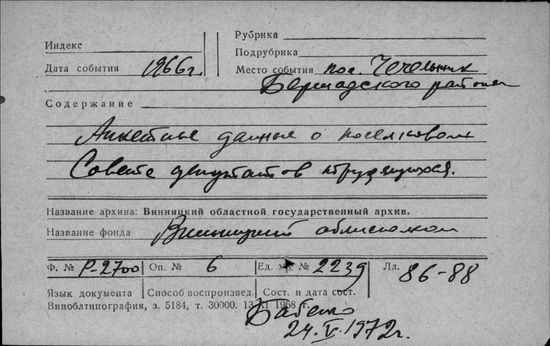 Индекс
Рубрика
Подрубрика
Дата события 1966г. Место события пос. Чечельник
Бершадского района
Содержание
Анкетные данные о поселковом
Совете депутатов трудящихся.
Название архива: Винницкий областной государственный архив.
Название фонда Винницкий облисполком
Ф. № Р-2700 Оп. № 6 Ед. хр. № 2239 Лл. 86-88
Язык документа Способ воспроизвед. Сост. и дата сост.
Виноблтипография, з. 5184, т. 30000. 13 XI 1968 г.
24.V.1972г.